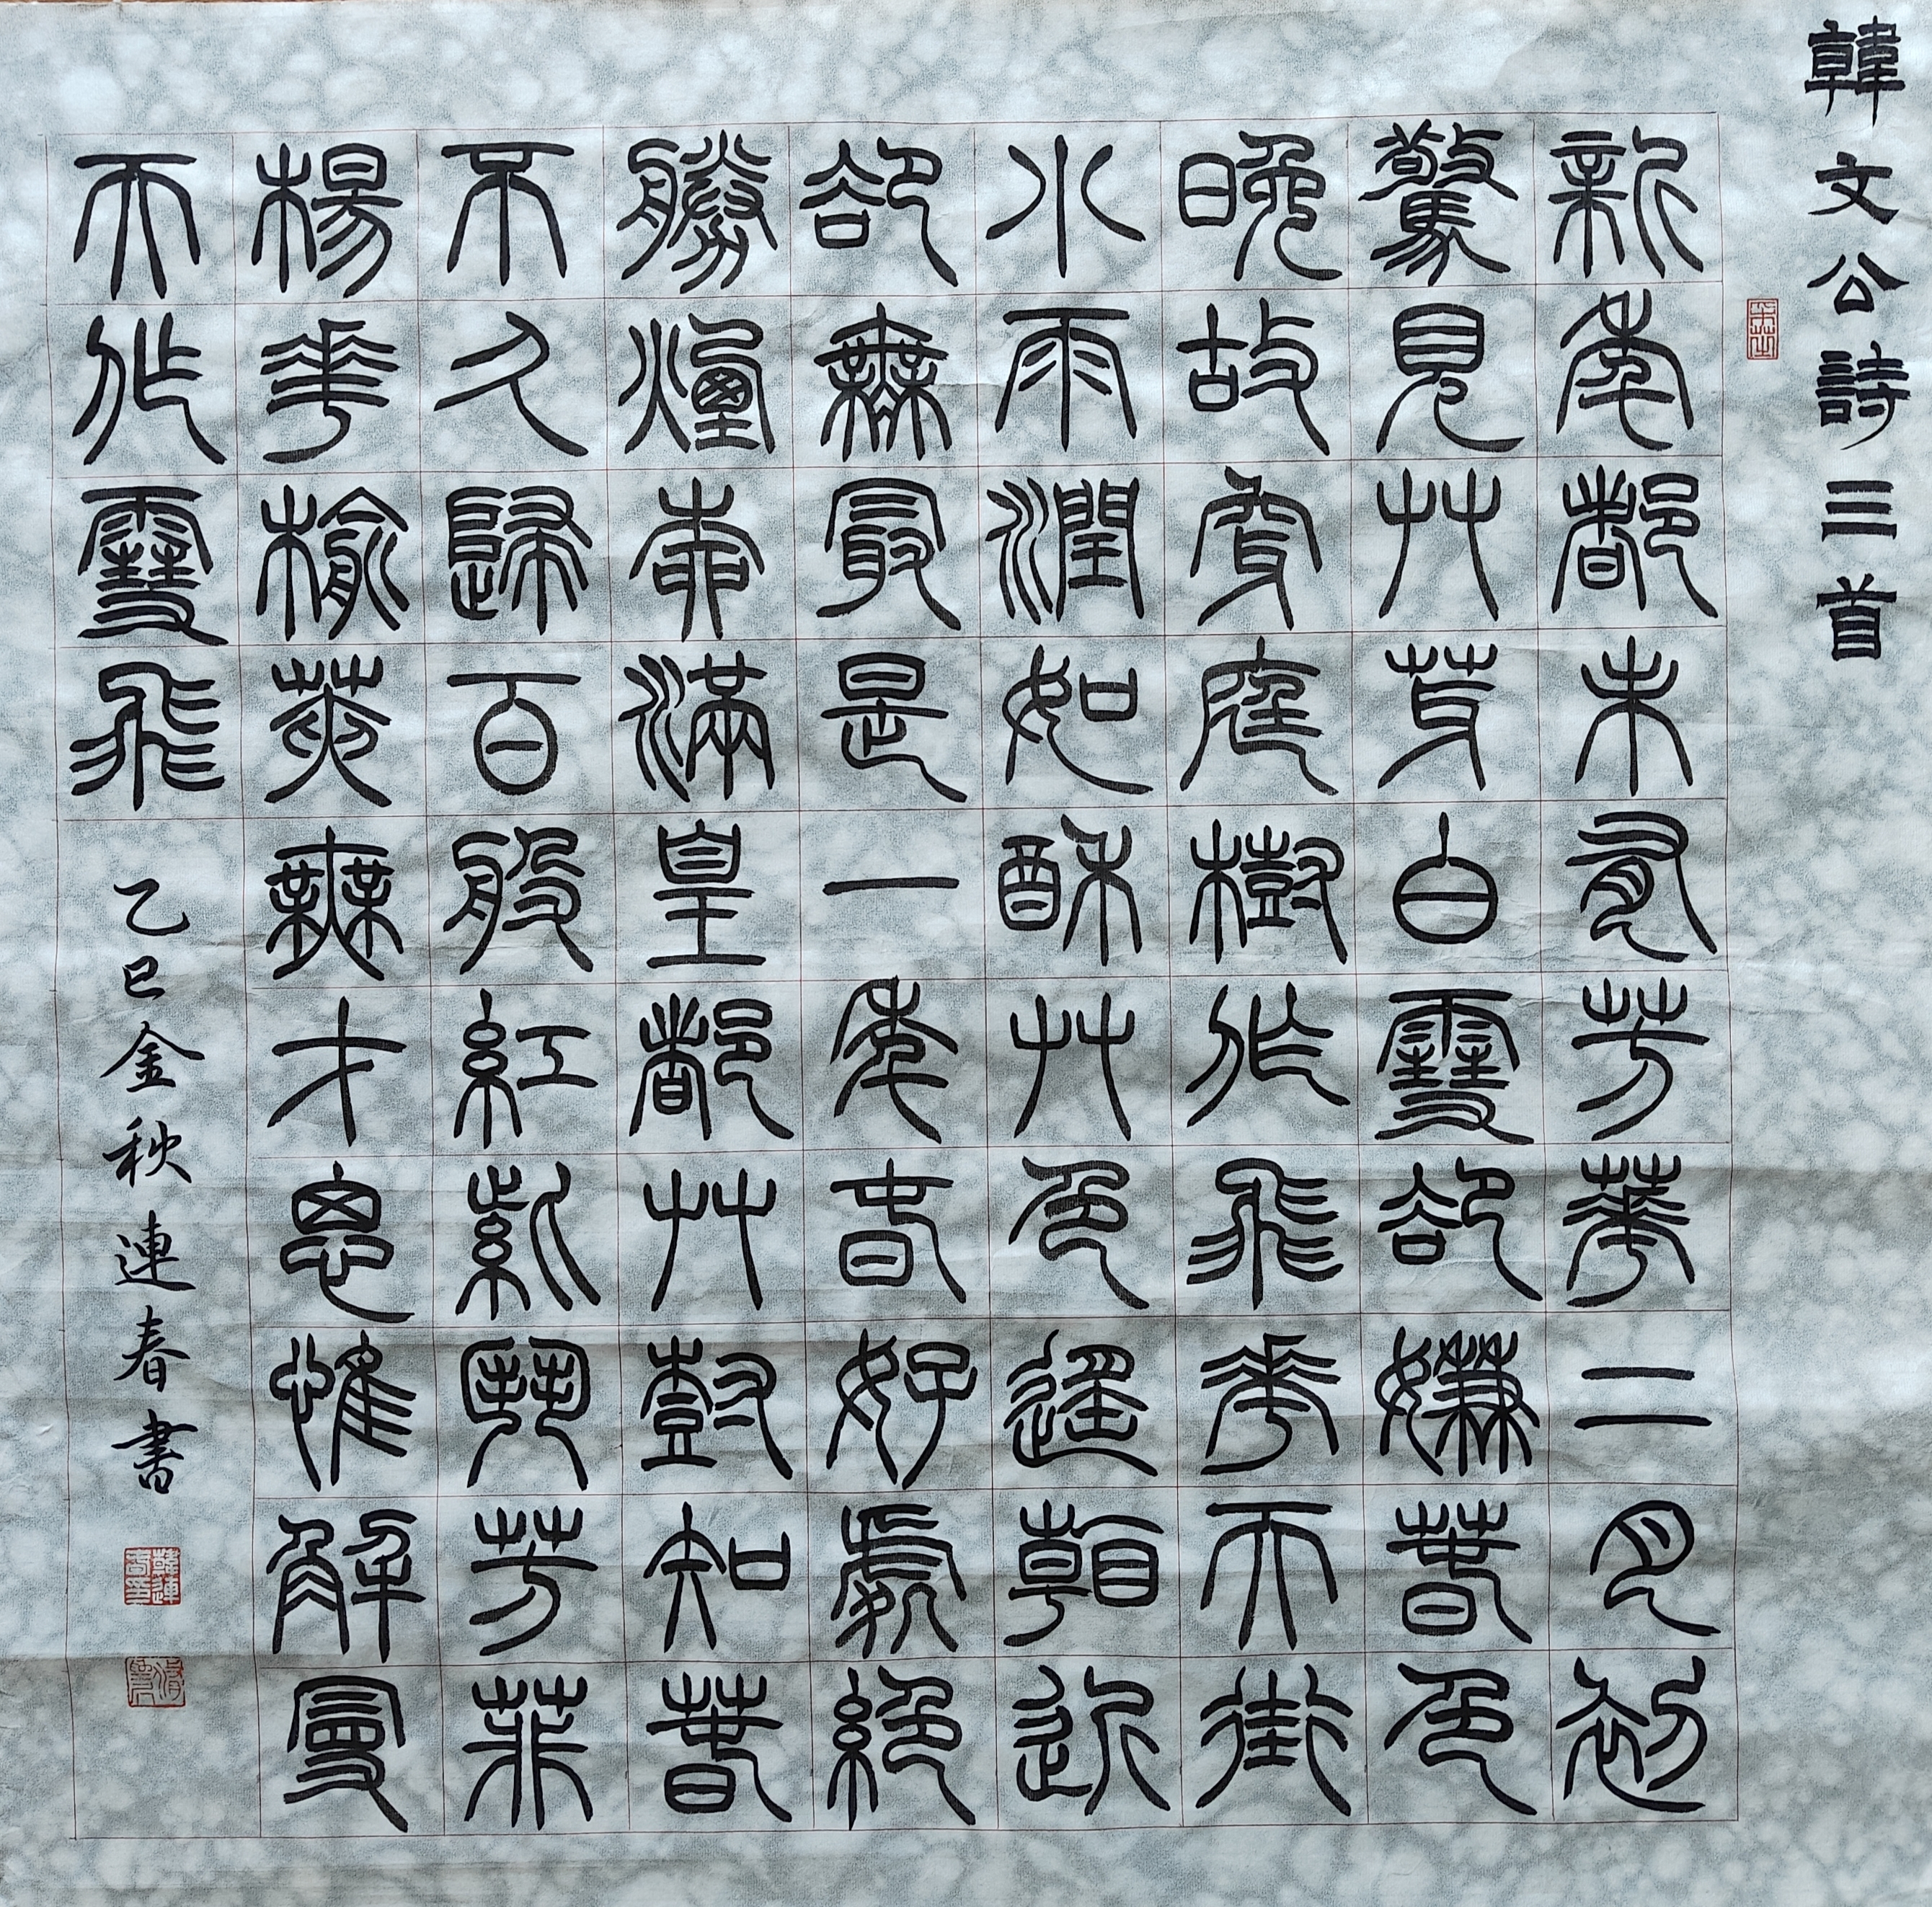 韓文公詩三首
新年都未有芳華二月初
驚見艸芽白雪卻嫌春色
晚故穿庭樹作飛花天街
小雨潤如酥艸色遙看近
卻無最是一年春好處絕
勝煙柳滿皇都艸樹知春
不久歸百般紅紫鬥芳菲
楊花榆莢無才思惟解曼
天作雪飛
乙巳金秋連春書
韓連春印